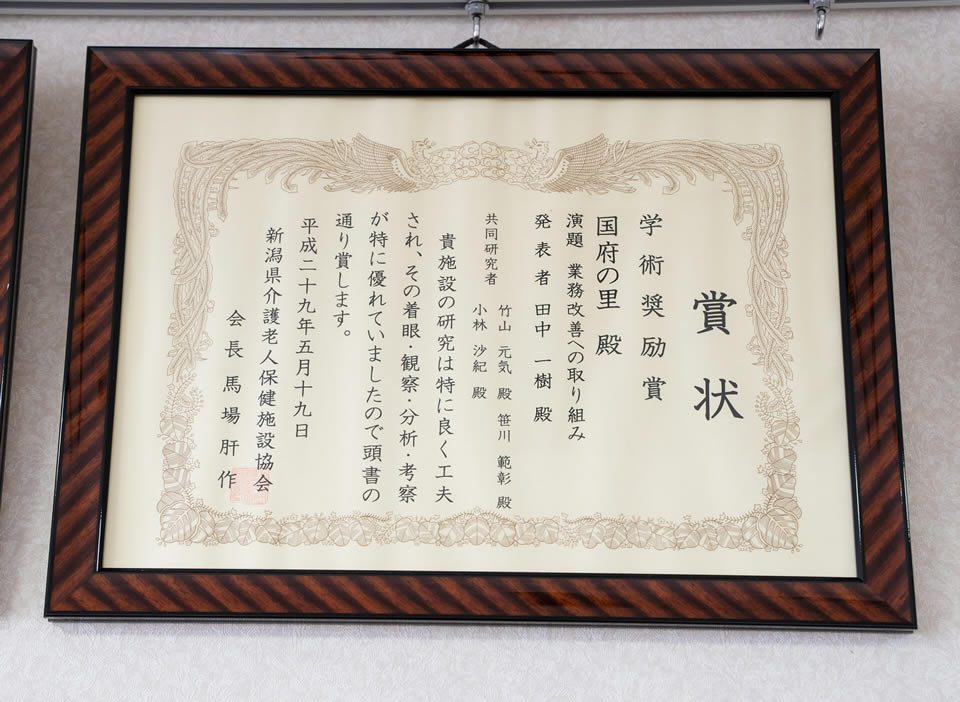 賞状
学術奨励賞
国府の里 殿
演題 業務改善への取り組み
発表者 田中 一樹 殿
共同研究者 竹山 元気 殿 笹川 範彰 殿
小林 沙紀 殿
貴施設の研究は特に良く工夫
され、その着眼・観察・分析・考察
が特に優れていましたので頭書の
通り賞します。
平成二十九年五月十九日
新潟県介護老人保健施設協会
会長 馬場肝作